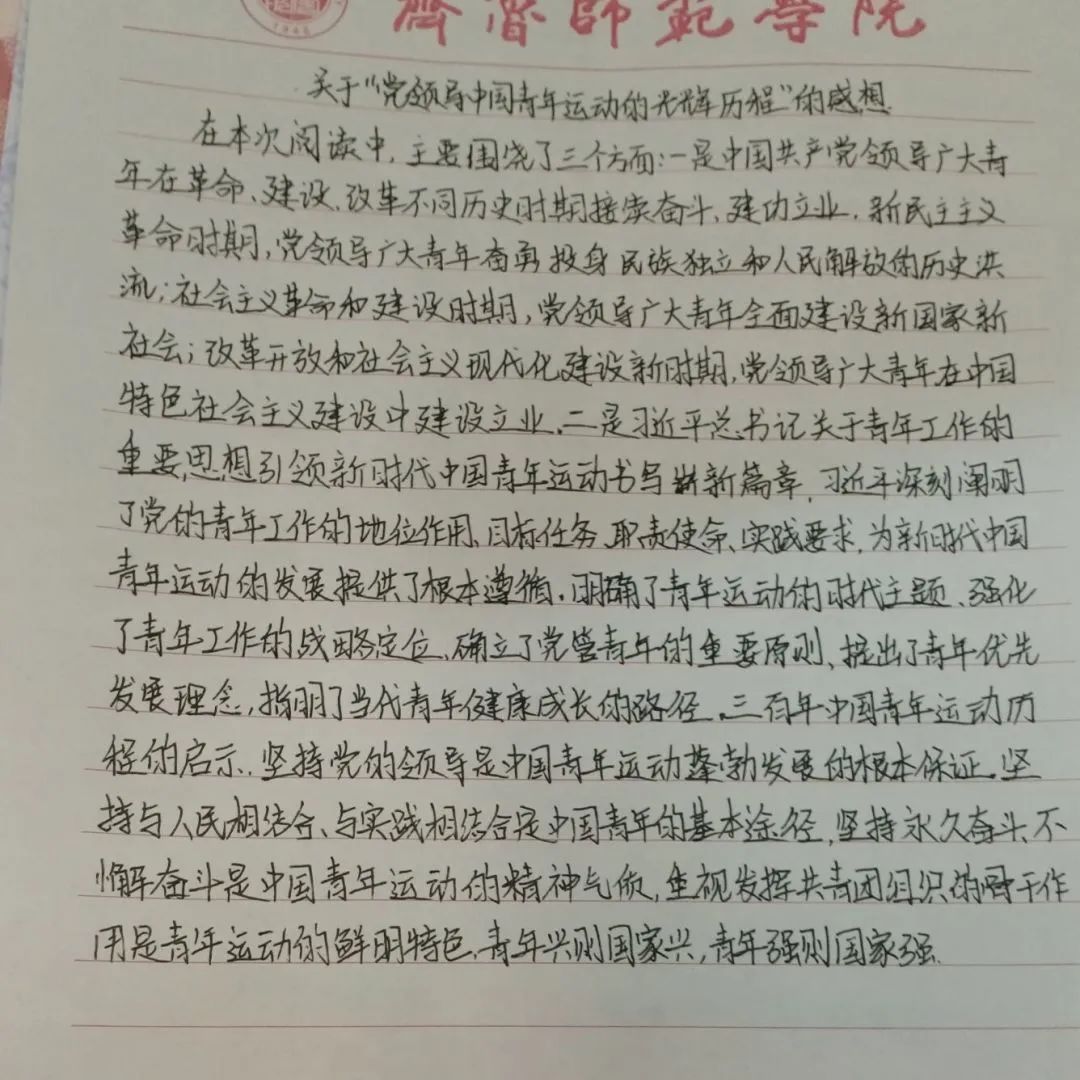 齊魯師範學院
1948
关于“党领导中国青年运动的光辉历程”的感想
在本次阅读中,主要围绕了三个方面:一是中国共产党领导广大青
年在革命、建设、改革不同历史时期接续奋斗、建功立业.新民主主义
革命时期,党领导广大青年奋勇投身民族独立和人民解放的历史洪
流;社会主义革命和建设时期,党领导广大青年全面建设新国家新
社会;改革开放和社会主义现代化建设新时期,党领导广大青年在中国
特色社会主义建设中建设立业.二是习近平总书记关于青年工作的
重要思想引领新时代中国青年运动书写崭新篇章,习近平深刻阐明
了党的青年工作的地位作用、目标任务、职责使命、实践要求,为新时代中国
青年运动的发展提供了根本遵循.明确了青年运动的时代主题、强化
了青年工作的战略定位、确立了党管青年的重要原则、提出了青年优先
发展理念,指明了当代青年健康成长的路径.三百年中国青年运动历
程的启示.坚持党的领导是中国青年运动蓬勃发展的根本保证.坚
持与人民相结合、与实践相结合是中国青年的基本途径,坚持永久奋斗、不
懈奋斗是中国青年运动的精神气质,重视发挥共青团组织的骨干作
用是青年运动的鲜明特色.青年兴则国家兴,青年强则国家强.